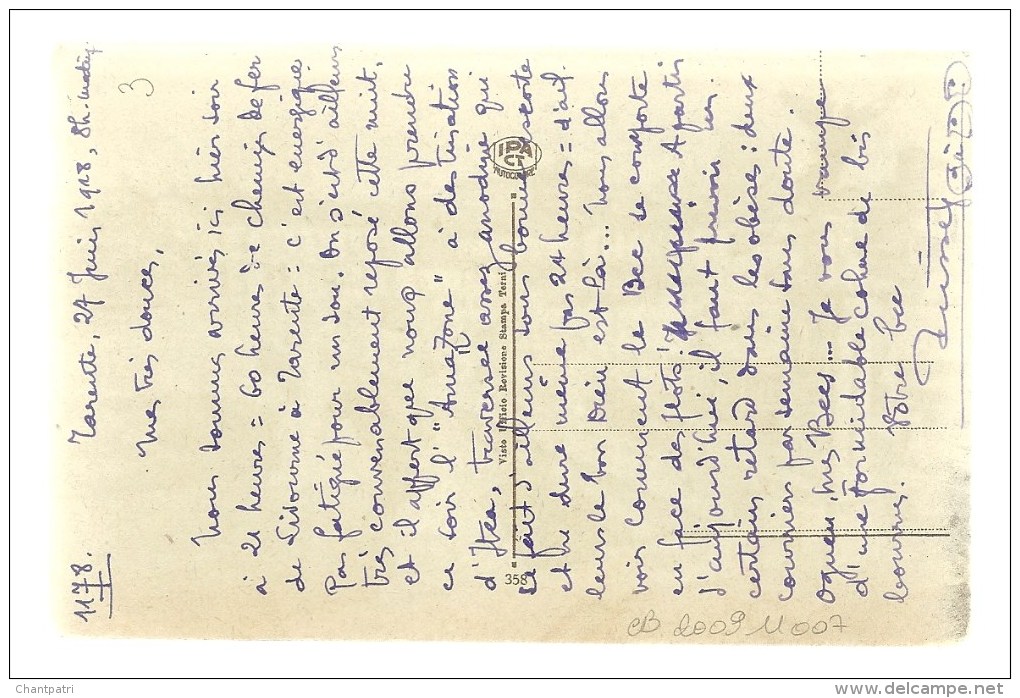 1178.
Tarente, 27 Juin 1918, 8h. matin.
3
Mes très douces,
Nous sommes arrivés ici hier soir
à 21 heures = 60 heures de chemin de fer
de Livourne à Tarente : c'est énergique.
Pas fatigué pour un sou. On s'est d'ailleurs
très convenablement reposé cette nuit,
et il appert que nous allons prendre
ce soir l'"Amazone" à destination
d'Itéa, traversée assez anodine qui
se fait d'ailleurs sous bonne escorte
et ne dure même pas 24 heures = d'ail-
leurs le bon Dieu est là... Nous allons
voir comment le Bec se comporte
en face des flots! A partir
d'aujourd'hui, il faut prévoir un
certain retard dans les obèses : deux
courriers par semaine sans doute.
mes Becs... Je vous
d'une formidable cohue de bis
Votre Bec
358
Visto Ufficio Revisione Stampa Terni
IPA
CT
AUTOCROMIA
CB 2009 11 007
Chantpatri
www.delcampe.net